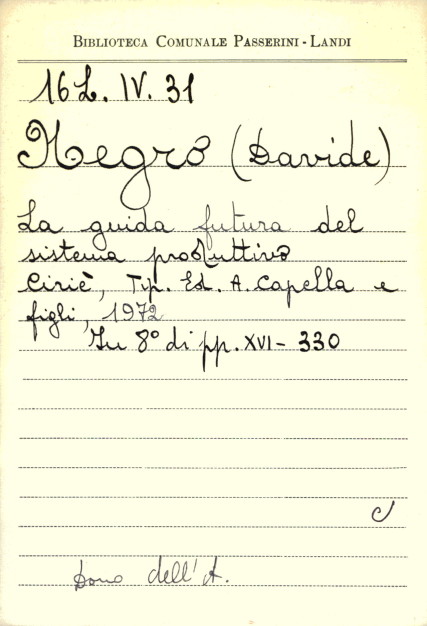 BIBLIOTECA COMUNALE PASSERINI-LANDI
16 L. IV. 31
Negro (Davide)
La guida futura del
sistema produttivo
Ciriè, Tip. Ed. A. Capella e
figli, 1972
In 8° di pp. XVI - 330
Dono dell'A.